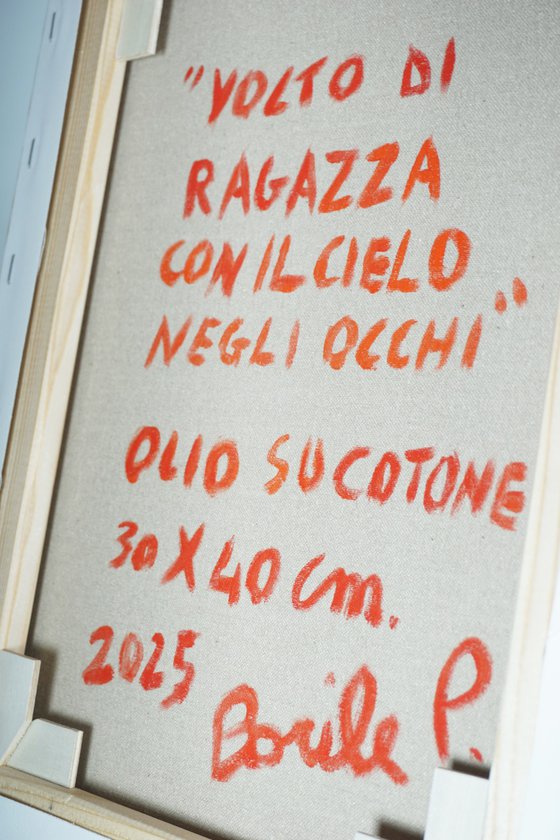 "VOLTO DI
RAGAZZA
CON IL CIELO
NEGLI OCCHI"
OLIO SU COTONE
30 X 40 cm.
2025
Borile P.